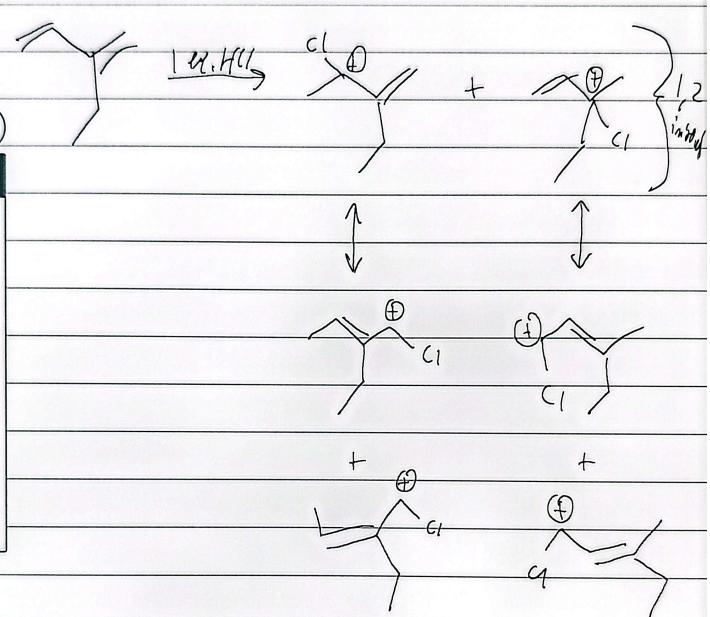 1 eq. HCl
Cl ⊕
+
⊕
Cl
1,2
⊕
Cl
⊕
Cl
+
+
⊕
Cl
⊕
Cl